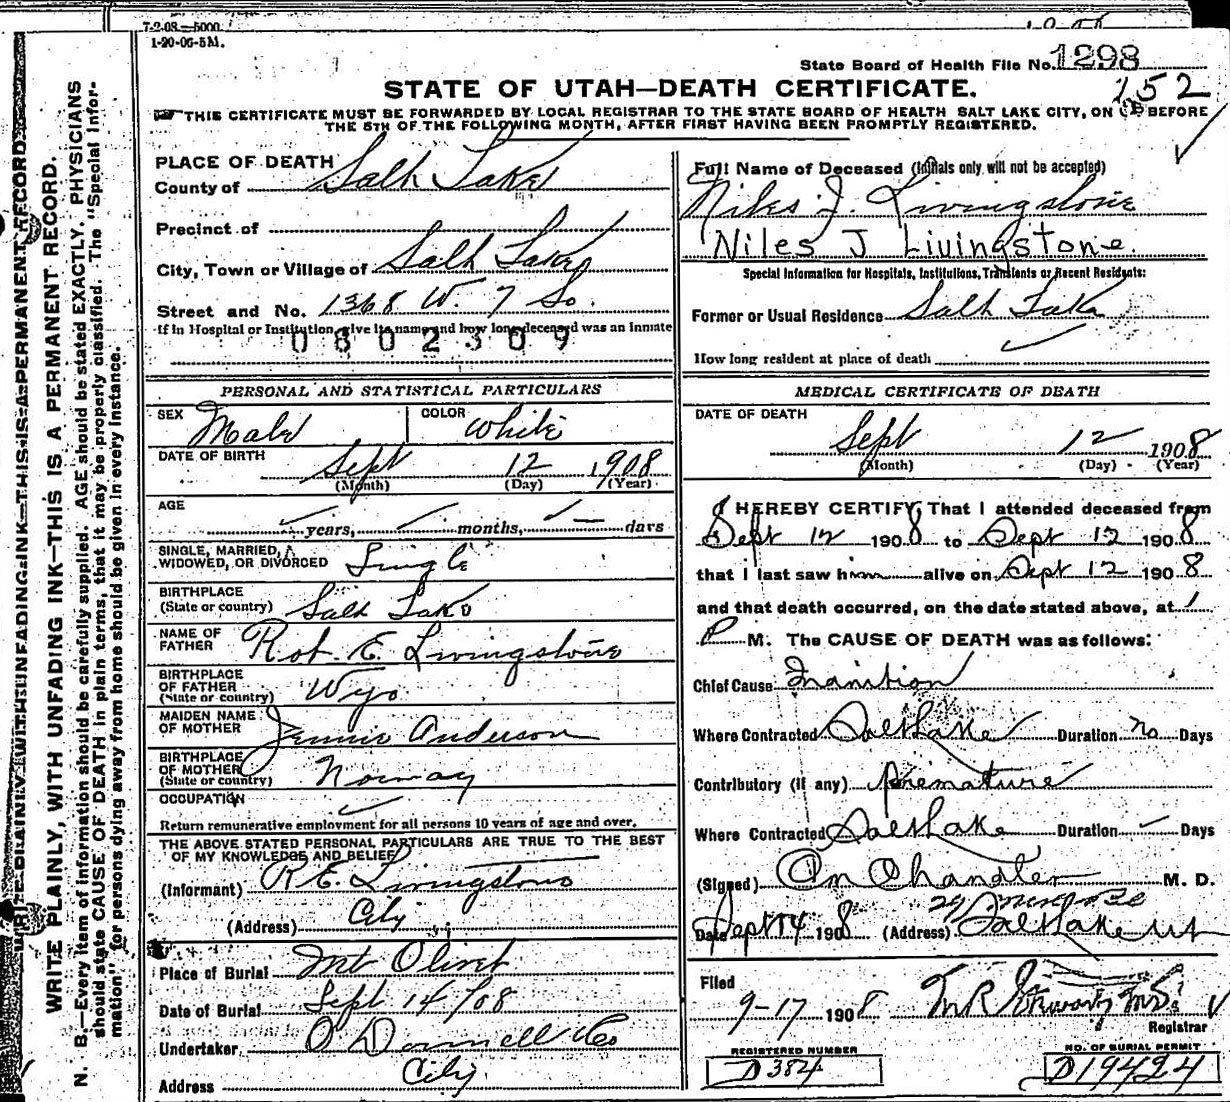 7-2-08—5000
1-20-06-5M.
State Board of Health File No. 1298
152
STATE OF UTAH—DEATH CERTIFICATE.
THIS CERTIFICATE MUST BE FORWARDED BY LOCAL REGISTRAR TO THE STATE BOARD OF HEALTH SALT LAKE CITY, ON BEFORE
THE 5TH OF THE FOLLOWING MONTH, AFTER FIRST HAVING BEEN PROMPTLY REGISTERED.
PLACE OF DEATH
County of Salt Lake
Precinct of
City, Town or Village of Salt Lake
Street and No. 1368 W. 7 So.
If in Hospital or Institution give its name and how long deceased was an inmate
0802309
PERSONAL AND STATISTICAL PARTICULARS
SEX Male COLOR White
DATE OF BIRTH Sept 12 1908
(Month) (Day) (Year)
AGE years, months, days
SINGLE, MARRIED, WIDOWED, OR DIVORCED Single
BIRTHPLACE (State or country) Salt Lake
NAME OF FATHER Robt. E. Livingstone
BIRTHPLACE OF FATHER (State or country) Wyo.
MAIDEN NAME OF MOTHER Jennie Anderson
BIRTHPLACE OF MOTHER (State or country) Norway
OCCUPATION
Return remunerative employment for all persons 10 years of age and over.
THE ABOVE STATED PERSONAL PARTICULARS ARE TRUE TO THE BEST
OF MY KNOWLEDGE AND BELIEF
(Informant) R E. Livingstone
(Address) City
Place of Burial Mt Olivet
Date of Burial Sept 14/08
Undertaker O'Donnell & Co
Address City
Full Name of Deceased (Initials only will not be accepted)
Niles J. Livingstone
Niles J Livingstone.
Special Information for Hospitals, Institutions, Transients or Recent Residents:
Former or Usual Residence Salt Lake
How long resident at place of death
MEDICAL CERTIFICATE OF DEATH
DATE OF DEATH
Sept 12 1908
(Month) (Day) (Year)
I HEREBY CERTIFY, That I attended deceased from
Sept 12 1908 to Sept 12 1908
that I last saw him alive on Sept 12 1908
and that death occurred, on the date stated above, at 1
P M. The CAUSE OF DEATH was as follows:
Chief Cause Inanition
Where Contracted Salt Lake Duration no Days
Contributory (if any) premature
Where Contracted Salt Lake Duration — Days
(Signed) Chandler M. D.
Date Sept 14 1908 (Address) Salt Lake Ut
Filed
9-17 1908
Registrar
REGISTERED NUMBER
D 384
NO. OF BURIAL PERMIT
D19424
WRITE PLAINLY, WITH UNFADING INK—THIS IS A PERMANENT RECORD.
WRITE PLAINLY, WITH UNFADING INK—THIS IS A PERMANENT RECORD.
N. B.—Every item of information should be carefully supplied. AGE should be stated EXACTLY. PHYSICIANS
should state CAUSE OF DEATH in plain terms, that it may be properly classified. The "Special Infor-
mation" for persons dying away from home should be given in every instance.